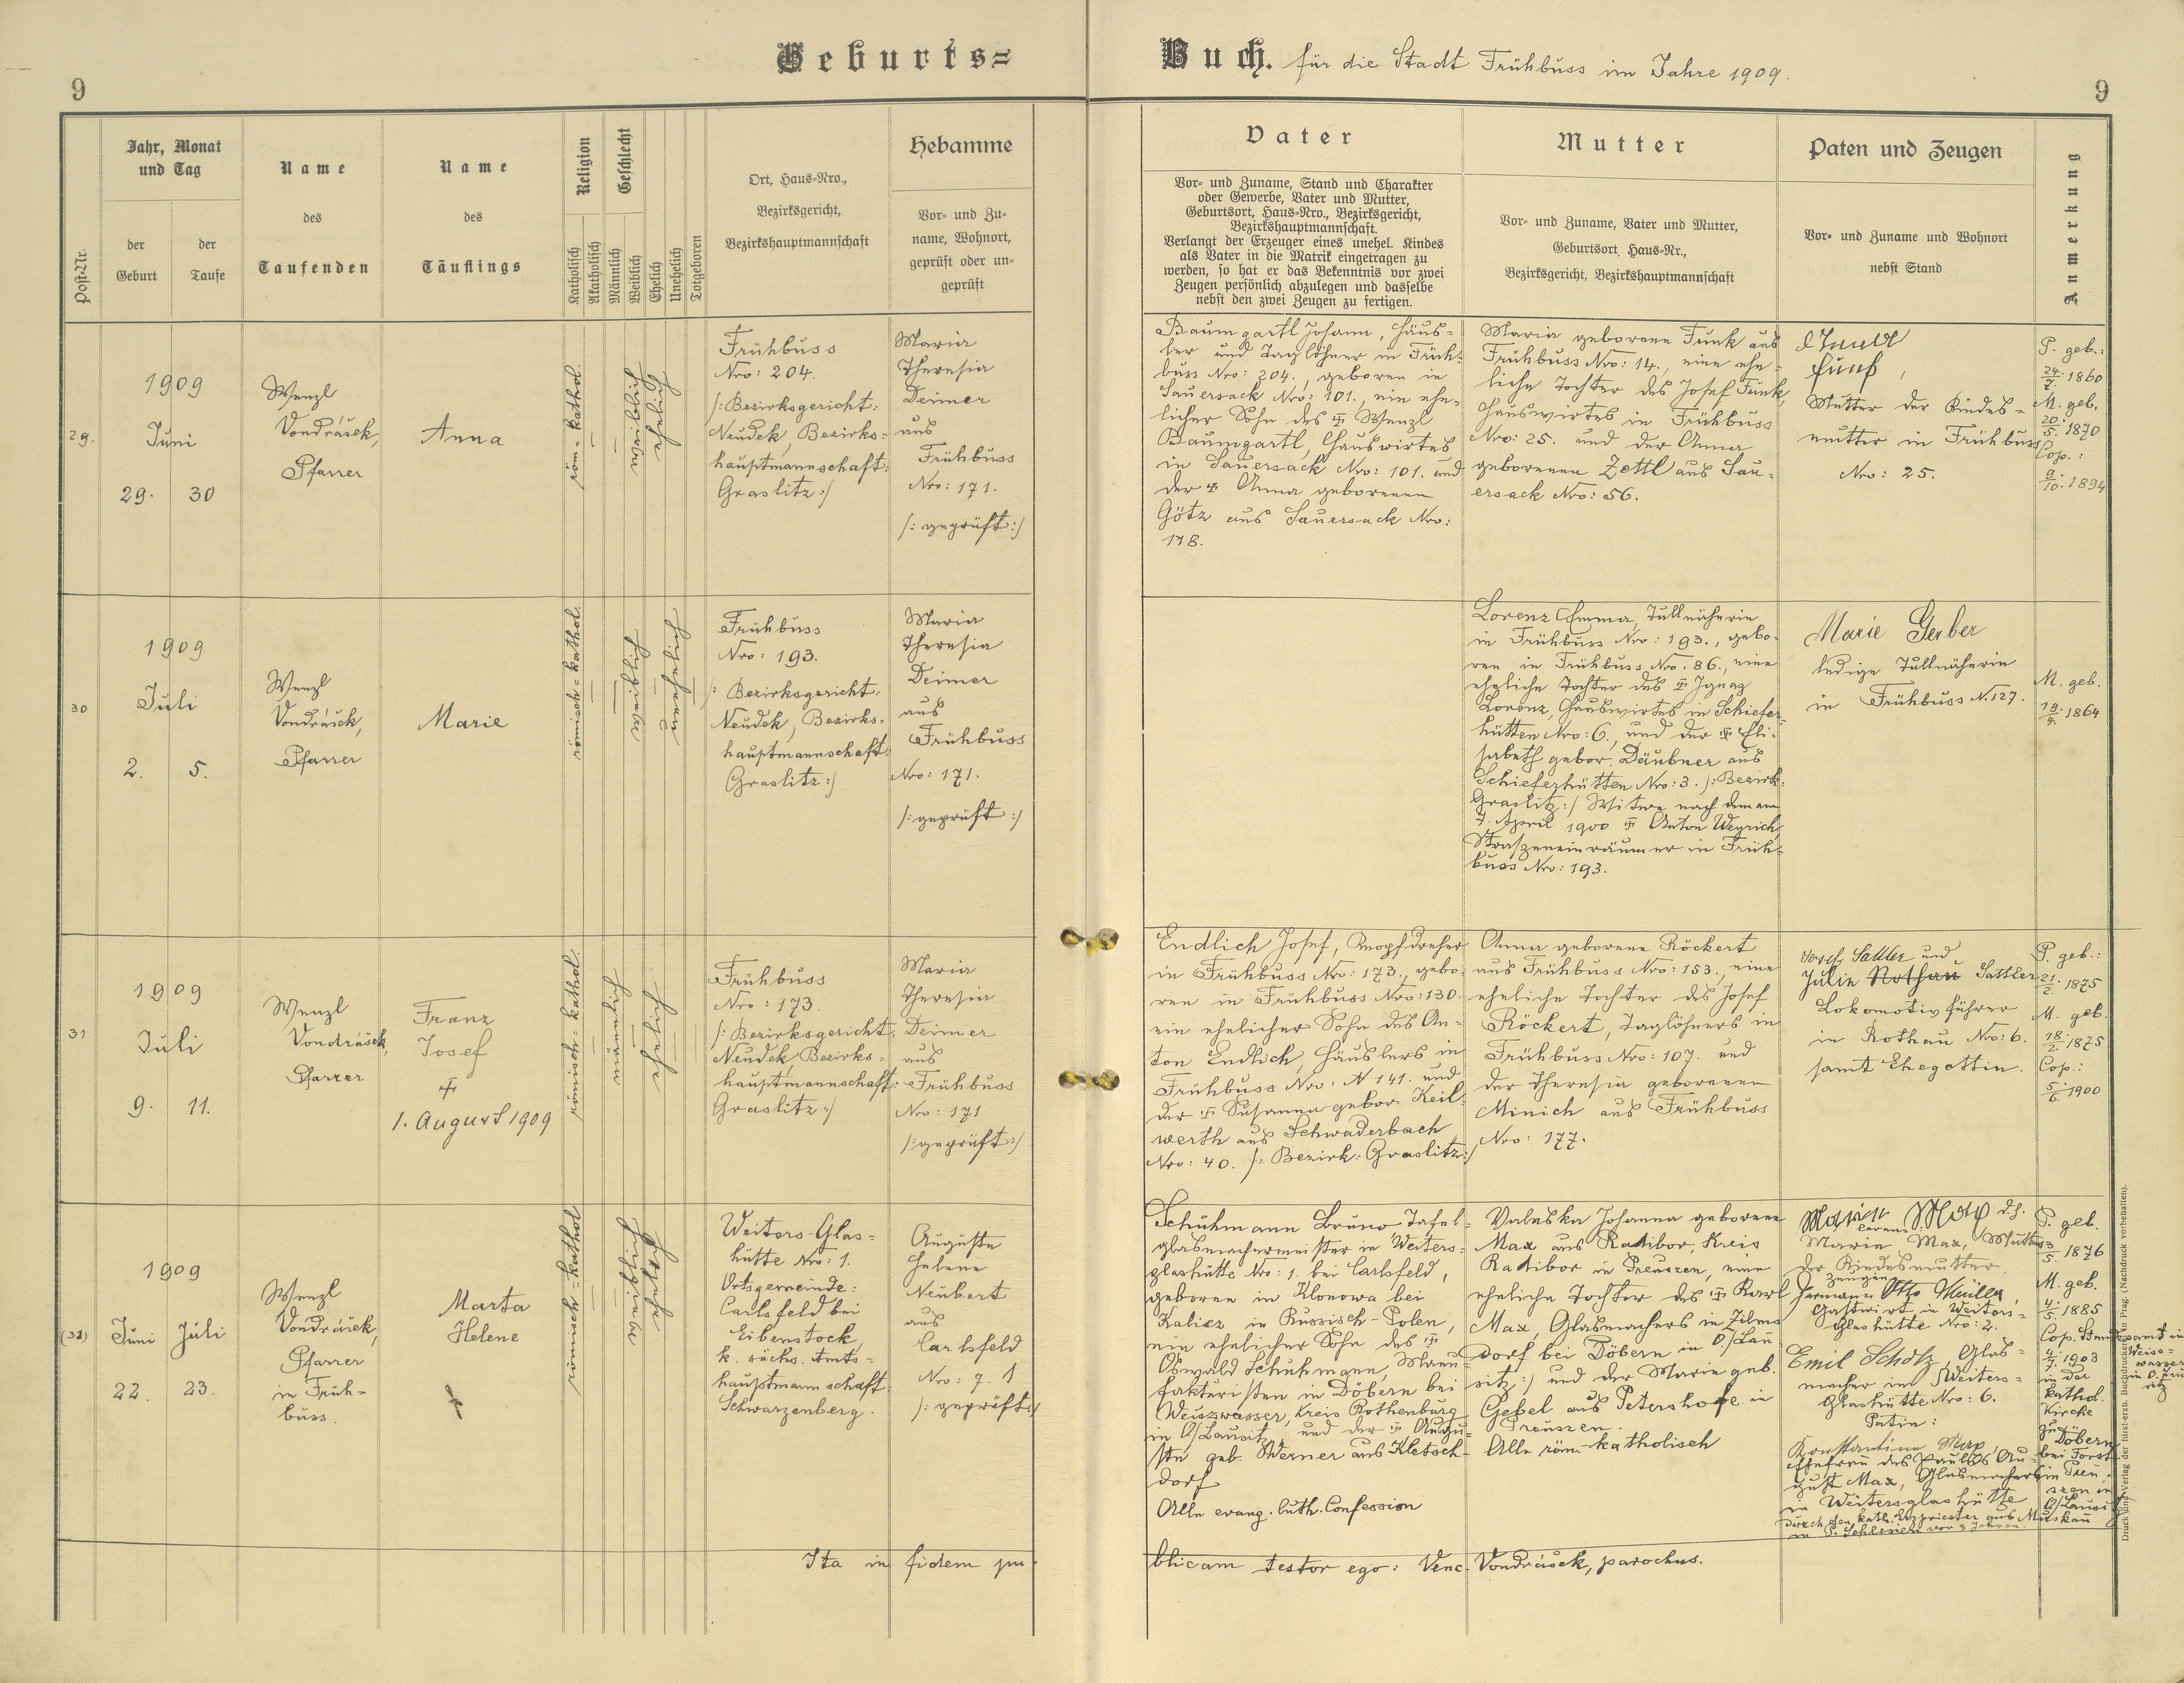 Geburts=
Buch. für die Stadt Frühbuss im Jahre 1909.
9
9
Post-Nr.
Jahr, Monat
und Tag
der
Geburt
der
Taufe
Name
des
Taufenden
Name
des
Täuflings
Religion
Katholisch
Akatholisch
Geschlecht
Männlich
Weiblich
Ehelich
Unehelich
Totgeboren
Ort, Haus-Nro.,
Bezirksgericht,
Bezirkshauptmannschaft
Hebamme
Vor- und Zu-
name, Wohnort,
geprüft oder un-
geprüft
Vater
Vor- und Zuname, Stand und Charakter
oder Gewerbe, Vater und Mutter,
Geburtsort, Haus-Nro., Bezirksgericht,
Bezirkshauptmannschaft.
Verlangt der Erzeuger eines unehel. Kindes
als Vater in die Matrik eingetragen zu
werden, so hat er das Bekenntnis vor zwei
Zeugen persönlich abzulegen und dasselbe
nebst den zwei Zeugen zu fertigen.
Mutter
Vor- und Zuname, Vater und Mutter,
Geburtsort, Haus-Nr.,
Bezirksgericht, Bezirkshauptmannschaft
Paten und Zeugen
Vor- und Zuname und Wohnort
nebst Stand
Anmerkung
29.
1909
Juni
29. 30
Wenzl
Vondrášek,
Pfarrer
Anna
röm = kathol.
Frühbuss
Nro: 204.
/: Bezirksgericht:
Neudek, Bezirks=
hauptmannschaft:
Graslitz :/
Maria
Theresia
Deimer
aus
Frühbuss
Nro: 171.
/: geprüft :/
Baumgartl Johann, Häus=
ler und Taglöhner in Früh=
buss Nro: 204., geboren in
Sauersack Nro: 101., ein ehe=
licher Sohn des Wenzl
Baumgartl, Hauswirtes
in Sauersack Nro: 101. und
der Anna geborenen
Götz aus Sauersack Nro:
178.
Maria geborene Funk aus
Frühbuss Nro: 14., eine ehe=
liche Tochter des Josef Funk,
Hauswirtes in Frühbuss
Nro: 25. und der Anna
geborenen Zettl aus Sau=
ersack Nro: 56.
Mutter der Kindes=
mutter in Frühbuss
Nro: 25.
P. geb.:
24/7. 1860
M. geb.
20/5. 1870
Cop.:
9/10. 1894
30
1909
Juli
2. 5.
Wenzl
Vondrášek,
Pfarrer
Marie
römisch = kathol.
Frühbuss
Nro: 193.
/: Bezirksgericht:
Neudek, Bezirks=
hauptmannschaft:
Graslitz :/
Maria
Theresia
Deimer
aus
Frühbuss
Nro: 171.
/: geprüft :/
Lorenz Emma, Tüllnäherin
in Frühbuss Nro: 193., gebo=
ren in Frühbuss Nro: 86., eine
eheliche Tochter des Ignaz
Lorenz, Hauswirtes in Schiefer=
hütten Nro: 6., und der Eli=
sabeth gebor. Däubner aus
Schieferhütten Nro: 3. /: Bezirk:
Graslitz :/ Witwe nach dem am
7. April 1900 Anton Weyrich,
Straszeneinräumer in Früh=
buss Nro: 193.
Marie Gerber
ledige Tüllnäherin
in Frühbuss N. 127.
M. geb.
19/4. 1864
31
1909
Juli
9. 11.
Wenzl
Vondrášek,
Pfarrer
Franz
Josef
1. August 1909
römisch = kathol.
Frühbuss
Nro: 173.
/: Bezirksgericht:
Neudek, Bezirks=
hauptmannschaft:
Graslitz :/
Maria
Theresia
Deimer
aus
Frühbuss
Nro: 171
/: geprüft :/
Endlich Josef, Knopfdreher
in Frühbuss Nro: 173., gebo=
ren in Frühbuss Nro: 130.
ein ehelicher Sohn des An=
ton Endlich, Häuslers in
Frühbuss Nro: N 141. und
der Susanna gebor. Keil=
werth aus Schwaderbach
Nro: 40. /: Bezirk: Graslitz :/
Anna geborene Röckert
aus Frühbuss Nro: 153., eine
eheliche Tochter des Josef
Röckert, Taglöhners in
Frühbuss Nro: 107. und
der Theresia geborenen
Minich aus Frühbuss
Nro: 177.
Josef Sattler und
Julie Rothau Sattler
Lokomotivführer
in Rothau Nro: 6.
samt Ehegattin.
P. geb.:
21/2. 1875
M. geb.
18/2. 1875
Cop.:
5/6. 1900
1909
Juni Juli
22. 23.
Wenzl
Vondrášek,
Pfarrer
in Früh=
buss.
Marta
Helene
römisch = kathol
Weiters-Glas=
hütte Nro: 1.
Ortsgemeinde:
Carlsfeld bei
Eibenstock,
k. sächs. Amts=
hauptmannschaft
Schwarzenberg.
Auguste
Helene
Neubert
aus
Carlsfeld
Nro: 7. 1
/: geprüft :/
Schuhmann Bruno Tafel=
glasmachermeister in Weiters=
glashütte Nro: 1. bei Carlsfeld,
geboren in Klonowa bei
Kalisz in Russisch-Polen,
ein ehelicher Sohn des
Oswald Schuhmann, Manu=
fakturisten in Döbern bei
Weiszwasser, Kreis Rothenburg
in O/Lausitz, und der Augu=
ste geb. Werner aus Kletsch=
dorf
Alle evang. luth. Confession
Valeska Johanna geborene
Max aus Ratibor, Kreis
Ratibor in Preuszen, eine
eheliche Tochter des Karl
Max, Glasmachers in Zilms
dorf bei Döbern in O./Lau
sitz :/ und der Marie geb.
Gebel aus Petershofe in
Preuszen.
Alle röm.-katholisch
Marie Max, Mutter
der Kindesmutter.
Zeugen
Hermann Otto Müller,
Gastwirt in Weiters=
Glashütte Nro: 2.
Emil Scholz, Glas=
macher in Weiters=
glashütte Nro: 6.
Patin:
Konstantine Max,
Ehefrau des Paulus Au=
gust Max, Glasmachers
in Weitersglashütte
P. geb.
1876
M. geb.
4/5. 1885
Cop. Standesamt in
Weiss=
wasser
4/7. 1903
in der
kathol.
Kirche
zu
Döbern
bei Forst
in Preu=
szen in
O/Lausitz
durch den kath. Erzpriester aus Muskau
Ita in fidem pu=
blicam testor ego: Venc. Vondrášek, parochus.
Druck und Verlag der fürst-erzb. Buchdruckerei in Prag. (Nachdruck vorbehalten).